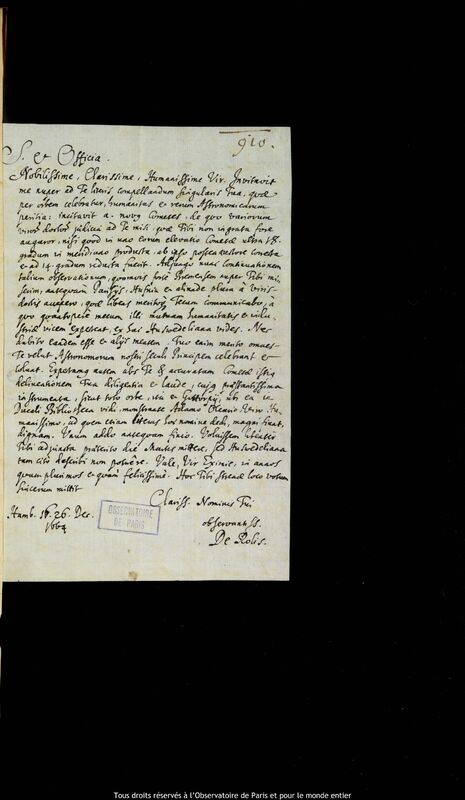 910.
S. et Officia.
Nobilissime, Clarissime, Humanissime Vir. Invitavit
me nuper ad Te literis compellandum singularis Tua, quae
per orbem celebratur, humanitas et rerum Astronomicarum
peritia: incitavit a. novus Cometes, de quo variorum
viror. doctor. judicia ad Te misi, quae Tibi non ingrata fore
auguror, nisi quod in uno eorum elevatio Cometae ultra 18.
gradum in meridiano producta, ab ipso postea autore correcta
et ad 14. gradum reducta fuerit. Adjungo nunc continuationem
talium observationum, quamvis forte Bremensem nuper Tibi mi-
serim, antequam Parisiis, Hafnia et aliunde plura à viris
doctis accepero, quae libens meritoq; Tecum communicabo, à
quo quantopere mecum illi mutuam humanitatis et indu-
striae vicem expectent, ex his vides. Nec
dubito eandem esse et alijs mentem. Tuo enim merito omnes
Te velut Astronomorum nostri seculi Principem celebrant et
colunt. Expectamus autem abs Te et accuratam Cometae istius
delineationem Tua diligentia et laude, cujus praestantissima
instrumenta, sicut toto orbe, ita et Guttorpij, ubi ea in
Ducali Bibliotheca vidi, monstrante Adamo Oleario Viro Hu-
manissimo, ad quem etiam literas hoc nomine dedi, magni fiunt,
dignam. Unum addo antequam finio. Voluissem libenter
Tibi adjuncta praeterito die Martis mittere, sed
tam citò describi non potuêre. Vale, Vir Eximie, in annos
quam plurimos et quàm felicissimè. Hoc Tibi strenae loco votum
sincerum mittit
Clariss. Nominis Tui
Hamb. 26. Dec.
observantiss.
1664
De Rolis.
OBSERVATOIRE
DE PARIS
Tous droits réservés à l'Observatoire de Paris et pour le monde entier